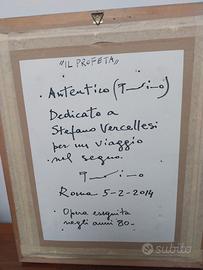 "IL PROFETA"
. Autentico (
Dedicato a
Stefano Vercellesi
per un viaggio
nel segno.
Roma 5-2-2014
. Opera eseguita
negli anni 80_
subito